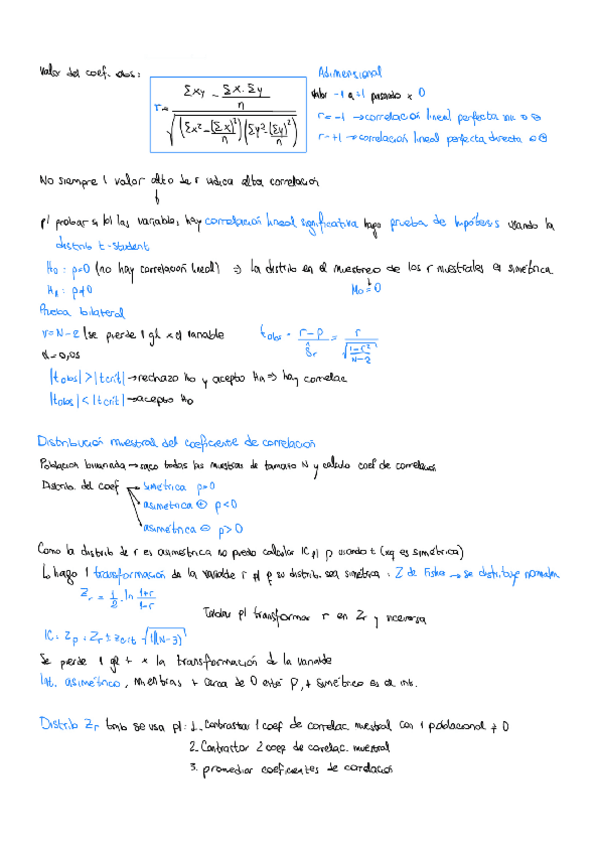 Valor del coef. obs:
r = (Σxy - Σx·Σy/n) / √((Σx² - (Σx)²/n)(Σy² - (Σy)²/n))
Adimensional
Valor -1 a +1 pasando x 0
r = -1 → correlación lineal perfecta inv.
r = +1 → correlación lineal perfecta directa
No siempre 1 valor alto de r indica alta correlación
↓
p/ probar si b/ las variables hay correlación lineal significativa hago prueba de hipótesis usando la
distrib t-student
H0: ρ=0 (no hay correlación lineal) ⇒ la distrib en el muestreo de los r muestrales es simétrica
HA: ρ≠0
M0=0
Prueba bilateral
ν=N-2 (se pierde 1 gl x c/ variable
tobs = (r-ρ)/Ŝr = r/√((1-r²)/(N-2))
α=0,05
|tobs| > |tcrit| → rechazo H0 y acepto HA ⇒ hay correlac
|tobs| < |tcrit| → acepto H0
Distribución muestral del coeficiente de correlación
Población bivariada → saco todas las muestras de tamaño N y calculo coef de correlación
Distrib. del coef → simétrica ρ=0
asimétrica ⊕ ρ<0
asimétrica ⊖ ρ>0
Como la distrib de r es asimétrica no puedo calcular IC p/ ρ usando t (xq es simétrica)
↳ hago 1 transformación de la variable r p/ q su distrib. sea simétrica: Z de Fisher → se distribuye normalm
Zr = 1/2 · ln (1+r)/(1-r)
Tablas p/ transformar r en Zr y viceversa
IC: Zρ = Zr ± zcrit √(1/(N-3))
Se pierde 1 gl + x la transformación de la variable
Int. asimétrico, mientras + cerca de 0 esté ρ, + simétrico es el int.
Distrib Zr tmb se usa p/: 1_ Contrastar 1 coef de correlac muestral con 1 poblacional ≠ 0
2_ Contrastar 2 coef de correlac. muestral
3. promediar coeficientes de correlación